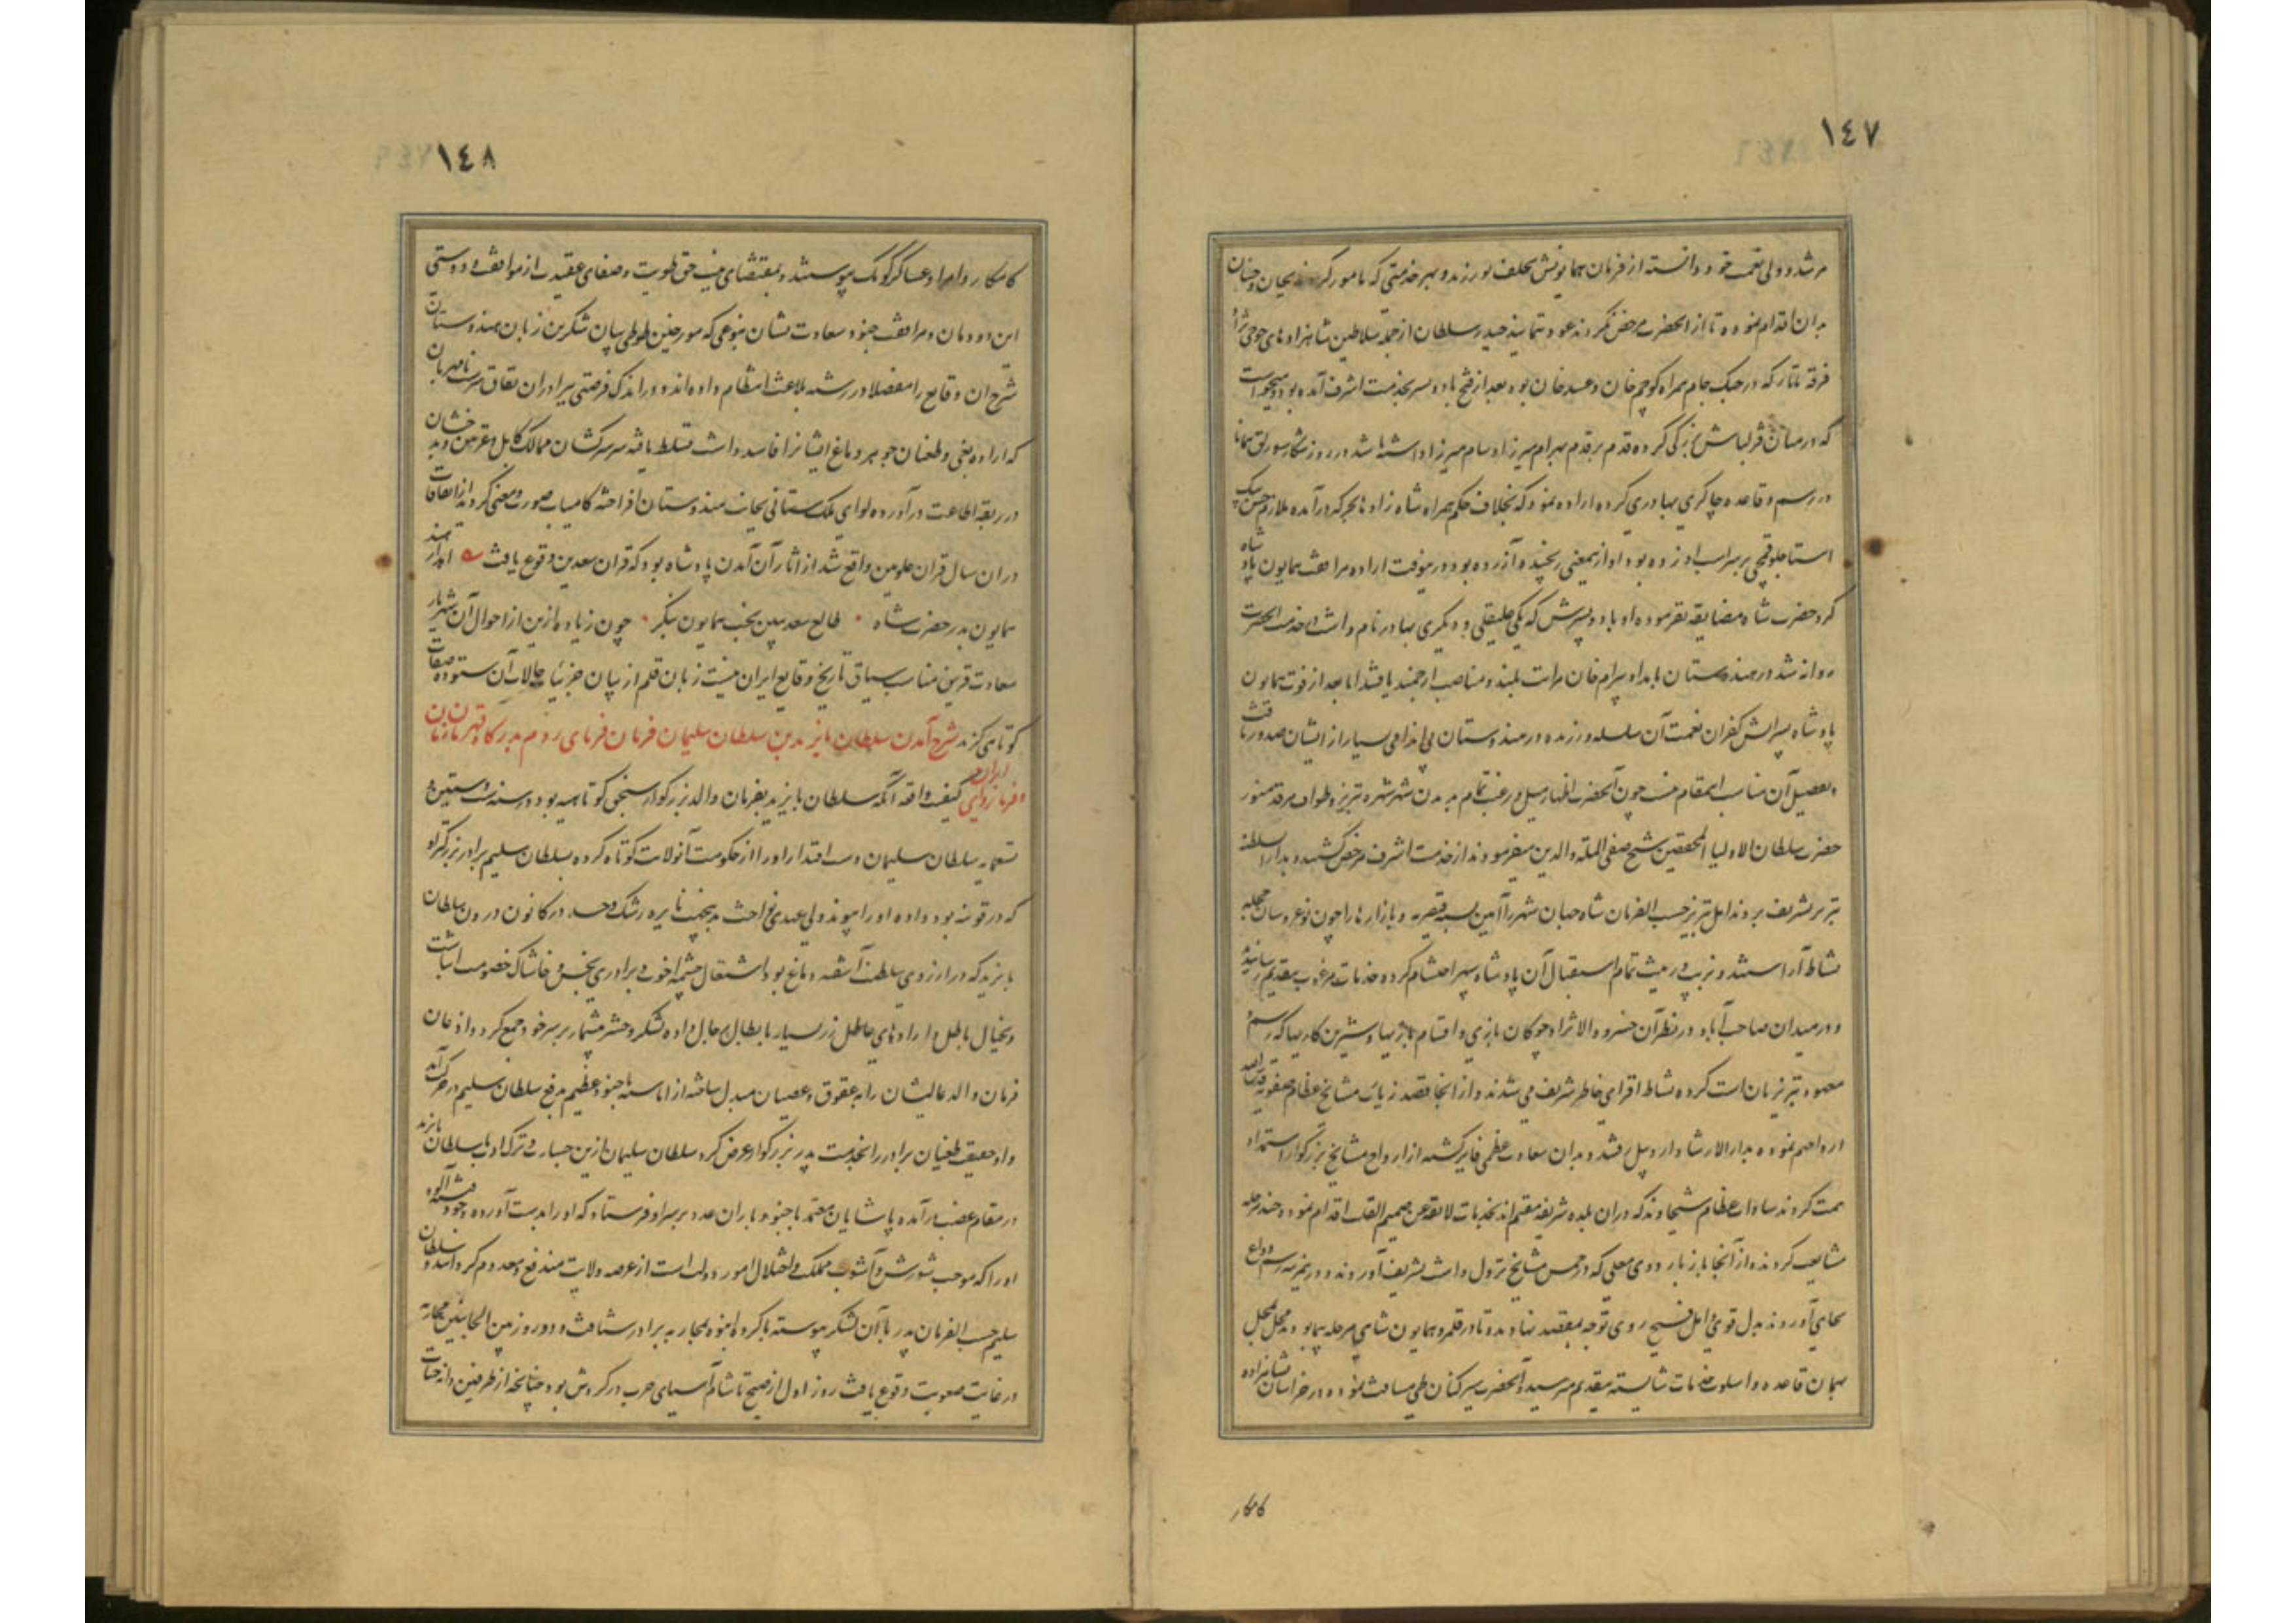 ١٤٧
مرشد و ولی نعمت خود دانسته از فرمان همایونش تخلف نورزند و بهر خدمتی که مامور کردند بجان و جنان
بدان اقدام نموده تا از آنحضرت مرخص نگردند عود ننمایند حیدر سلطان از جمله سلاطین شاهزادهای جوجی نژاد
فرقه تاتار که در جنک جام همراه کوچم خان و عبید خان بوده بعد از فتح با دو پسر بخدمت اشرف آمده بود و میخواست
که در میان قزلباش بزرکی کرده قدم بر قدم بهرام میرزا و سام میرزا داشته باشد در روز شکار سورلق همانا
در رسم و قاعده چاکری بهادری کرده اراده نمود که بخلاف حکم همراه شاه زادها بجرکه درآمده ملازم حسن بیک
استاجلو قیچی بر سر اسب او زده بود او از یمعنی رنجیده آزرده بود درینوقت اراده مرافقت همایون پادشاه
کرد حضرت شاه مضایقه نفرموده او با دو پسرش که یکی علیقلی و دیکری بهادر نام داشت در خدمت آنحضرت
روانه شد در هندوستان با امداد بیرام خان مراتب بلند و مناصب ارجمند یافتند اما بعد از فوت همایون
پادشاه پسرانش کفران نعمت آن سلسله ورزیده در هندوستان بی اندامی بسیار از ایشان صدور یافت
و تفصیل آن مناسب این مقام نیست چون آنحضرت اظهار میل و رغبت تمام بدیدن شهر شهره تبریز و طواف مرقد منور
حضرت سلطان الاولیاء المحققین شیخ صفی الملة والدین میفرمودند از خدمت اشرف مرخص کشته بدار السلطنه
تبریز تشریف بردند اهل تبریز حسب الفرمان شاه جهان شهر را آیین بسته قیصریه و بازارها را چون نوعروسان حجله
نشاط آراستند و بزیب و زینت تمام استقبال آن پادشاه سپهر احتشام کرده خدمات مرغوب بتقدیم رسانیدند
و در میدان صاحب آباد در نظر آن خسرو والا نژاد چوکان بازی و اقسام بازیها و شیرین کاریها که رسم
معهود تبریزیان است کرده نشاط افزای خاطر شریف می شدند و از آنجا قصد زیارت مشایخ عظام صفویه قدس الله
ارواحهم نموده بدار الارشاد اردبیل رفتند و بدان سعادت عظمی فایز کشته از ارواح مشایخ بزرکوار استمداد
همت کردند سادات عظام شیخاوند که در آن بلده شریفه مقیم اند بخدمات لایقه عن صمیم القلب اقدام نموده چند مرحله
مشایعت کردند و از آنجا باز باردوی معلی که در خمس مشایخ نزول داشت تشریف آوردند و درین مرتبه رسم وداع
بجای آورده بدل قوی و امل فسیح روی توجه بمقصد نهادند و تا در قلمرو همایون شاهی مرحله پیما بودند محل بمحل
بهمان قاعده و اسلوب خدمات شایسته بتقدیم میرسید و آنحضرت سیر کنان طی مسافت نموده در خراسان بشاهزاده
کامکار
١٤٨
کامکار و امرا و عساکر کومک پیوستند و بمقتضای نیت حق طویت و صفای عقیدت از موافقت و دوستی
این دودمان و مرافقت جنود سعادت نشان بنوعی که مورخین طوطی بیان شکرین زبان هندوستان
شرح آن وقایع را مفصلا در رشته بلاغت انتظام داده‌اند و در اندک فرصتی ببرادران نفاق سرشت نامهربان
که اراده بغی و طغیان جوهر دماغ ایشانرا فاسد داشت تسلط یافته سرکشان ممالک کابل و غزنین و بدخشان
در ربقه اطاعت درآورده لوای ملک ستانی بجانب هندوستان افراخته کامیاب صورت و معنی کردید از اتفاقات
در آن سال قران علویین واقع شد از آثار آن آمدن پادشاه بود که قران سعدین وقوع یافت آمدن ز هند
همایون بدر حضرت شاه طالع سعد ببین بخت همایون بنکر چون زیاده ازین از احوال آن شهریار
سعادت قرین مناسب سیاق تاریخ وقایع ایران نیست زبان قلم از بیان جزئیات حالات آن ستوده صفات
کوتاهی کزید شرح آمدن سلطان بایزید بن سلطان سلیمان فرمان فرمای روم بدرکاه قهرمان زمان
و فرمانروای ایران کیفیت واقعه آنکه سلطان بایزید بفرمان والد بزرکوار سنجق کوتاهیه بود در سنه ست و ستین و
تسعمایه سلطان سلیمان دست اقتدار او را از حکومت آنولایت کوتاه کرده بسلطان سلیم برادر بزرکتر او
که در قونیه بود داده او را پیوند ولی عهدی نواخت بدینجهت نایره رشک و حسد در کانون درون سلطان
بایزید که در آرزوی سلطنت آشفته دماغ بود اشتعال چشمه اخوت و برادری بخس و خاشاک خصومت انباشت
و بخیال باطل و ارادهای عاطل زر بسیار بابطال رجال داده لشکر و حشر بیشمار بر سر خود جمع کرد و اذعان
فرمان والد عالیشان را بعقوق و عصیان مبدل ساخته از اماسیه با جنود عظیم بدفع سلطان سلیم در حرکت آمد
و او حقیقت طغیان برادر را بخدمت پدر بزرکوار عرض کرد سلطان سلیمان ازین جسارت و ترک ادب با سلطان بایزید
در مقام عضب درآمده پاشایان معتمد با جنود باران عدد بر سر او فرستاد که او را بدست آورده وجود فتنه آلود
او را که موجب شورش و آشوب مملکت و اختلال امور دولت است از عرصه ولایت مندفع و معدوم کردانند و سلطان
سلیم حسب الفرمان پدر با آن لشکر پیوسته با کروه انبوه بمحاربه برادر شتافت و دو روز بین الجانبین محاربه
در غایت صعوبت وقوع یافت روز اول از صبح تا شام آسیای حرب در کردش بود چنانچه از طرفین